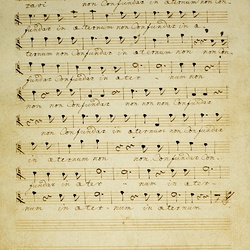 non Confundar in aeternum non con-
fundar Confundar in aeternum non Confundar in a
ternum non Confundar in aeternum non non con
fundar Confundar in aeter - num
non non Confundar non confundar in aeternum
non Confundar in aeternum non confundar
in aeternum non non Confundar Con-
fundar in aeter - num in aeter-
num in aeter - num in aeternum